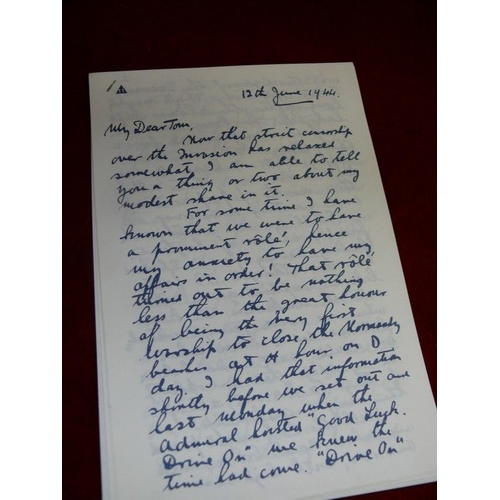 12th June 1944.
My Dear Tom,
Now that strict censorship
over the Invasion has relaxed
somewhat, I am able to tell
you a thing or two about my
modest share in it.
For some time I have
known that we were to have
a prominent rôle, hence
my anxiety to have my
affairs in order! That rôle
turned out to be nothing
less than the great honour
of being the very first
warship to close the Normandy
beaches at H hour on D
day. I had that information
shortly before we set out and
last Monday when the
Admiral hoisted "Good Luck.
Drive On" we knew the
time had come. "Drive On"